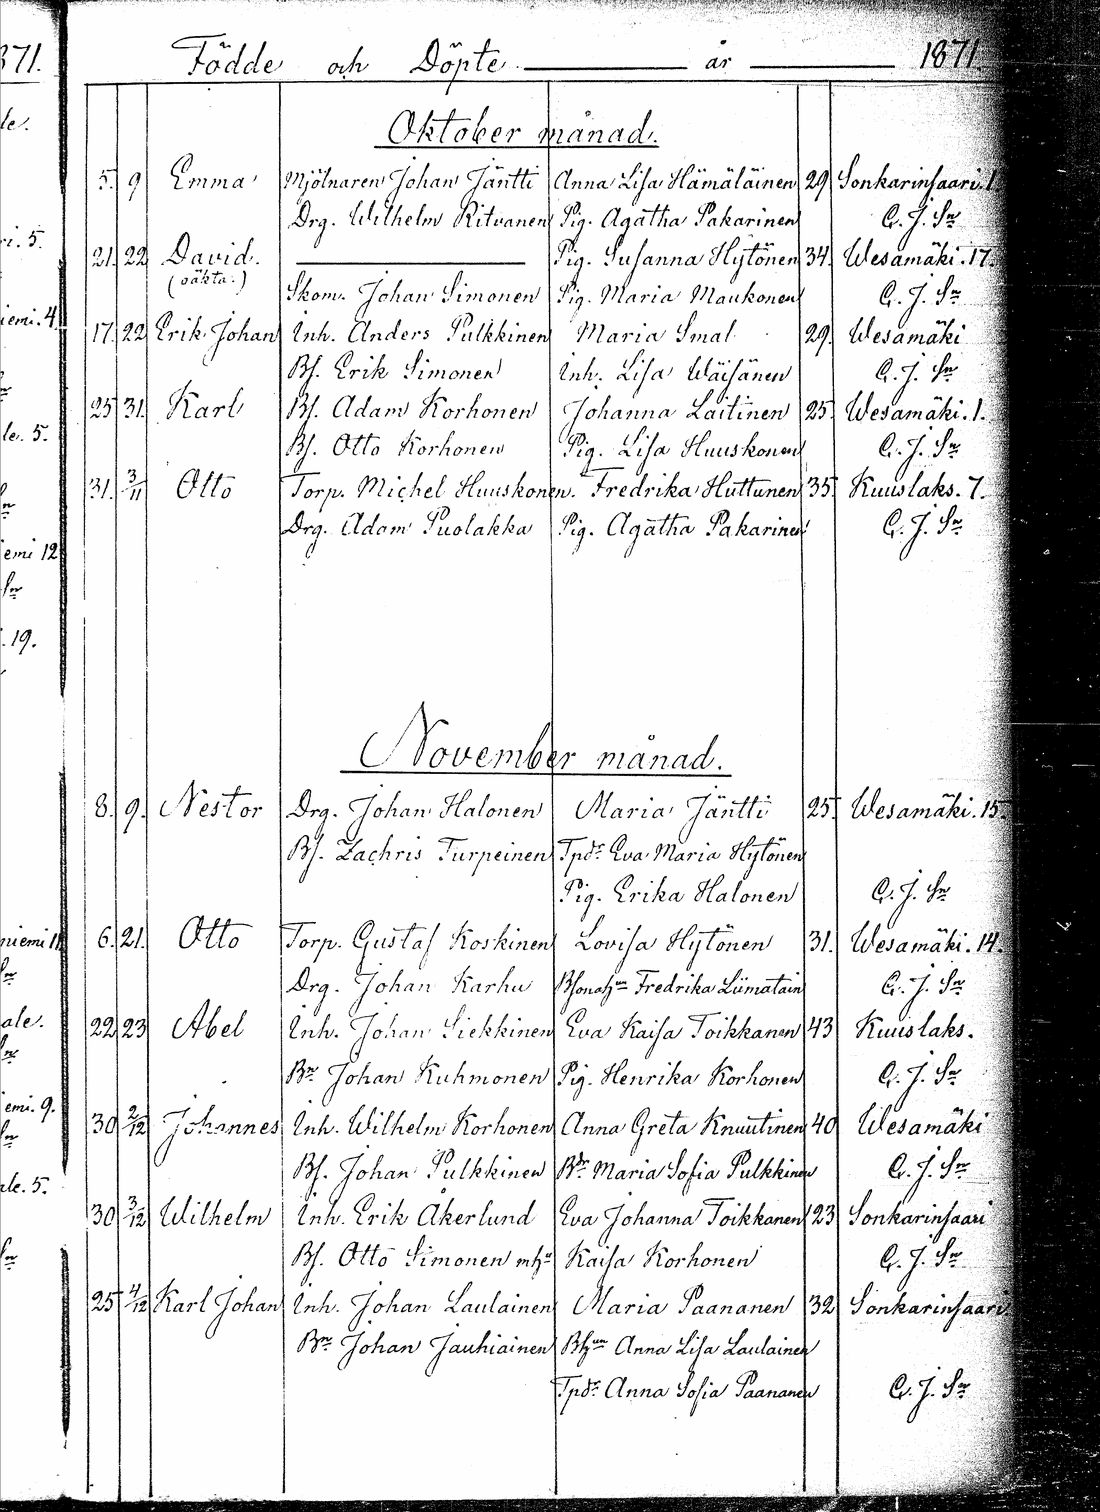 371.
Födde och Döpte år 1871.
Oktober månad.
5. 9 Emma Mjölnaren Johan Jäntti Anna Lisa Hämäläinen 29 Sonkarinsaari. 1.
Drg. Wilhelm Ritvanen Pig. Agatha Pakarinen C. J. Sn
21. 22 David. Pig. Susanna Hytönen 34. Wesamäki. 17.
(oäkta.) Skom. Johan Simonen Pig. Maria Maukonen C. J. Sn
17. 22 Erik Johan Inh. Anders Pulkkinen Maria Smal 29. Wesamäki
Bs. Erik Simonen Inh. Lisa Wäisänen C. J. Sn
25 31. Karl Bs. Adam Korhonen Johanna Laitinen 25. Wesamäki. 1.
Bs. Otto Korhonen Pig. Lisa Huuskonen C. J. Sn
31. 3/11 Otto Torp. Michel Huuskonen. Fredrika Huttunen 35 Kuuslaks. 7.
Drg. Adam Puolakka Pig. Agatha Pakarinen C. J. Sn
November månad.
8. 9. Nestor Drg. Johan Halonen Maria Jäntti 25. Wesamäki. 15.
Bs. Zachris Turpeinen Tpdr Eva Maria Hytönen
Pig. Erika Halonen C. J. Sn
6. 21. Otto Torp. Gustaf Koskinen Lovisa Hytönen 31. Wesamäki. 14.
Drg. Johan Karhu Fredrika Liimatain C. J. Sn
22 23 Abel Inh. Johan Siekkinen Eva Kaisa Toikkanen 43 Kuuslaks.
Bn Johan Kuhmonen Pig. Henrika Korhonen C. J. Sn
30 2/12 Johannes Inh. Wilhelm Korhonen Anna Greta Knuutinen 40 Wesamäki
Bs. Johan Pulkkinen Bdr Maria Sofia Pulkkinen C. J. Sn
30 3/12 Wilhelm Inh. Erik Åkerlund Eva Johanna Toikkanen 23 Sonkarinsaari
Bs. Otto Simonen mhu Kaisa Korhonen C. J. Sn
25 4/12 Karl Johan Inh. Johan Laulainen Maria Paananen 32 Sonkarinsaari
Bn Johan Jauhiainen Bhun Anna Lisa Laulainen
Tpdr Anna Sofia Paananen C. J. Sn